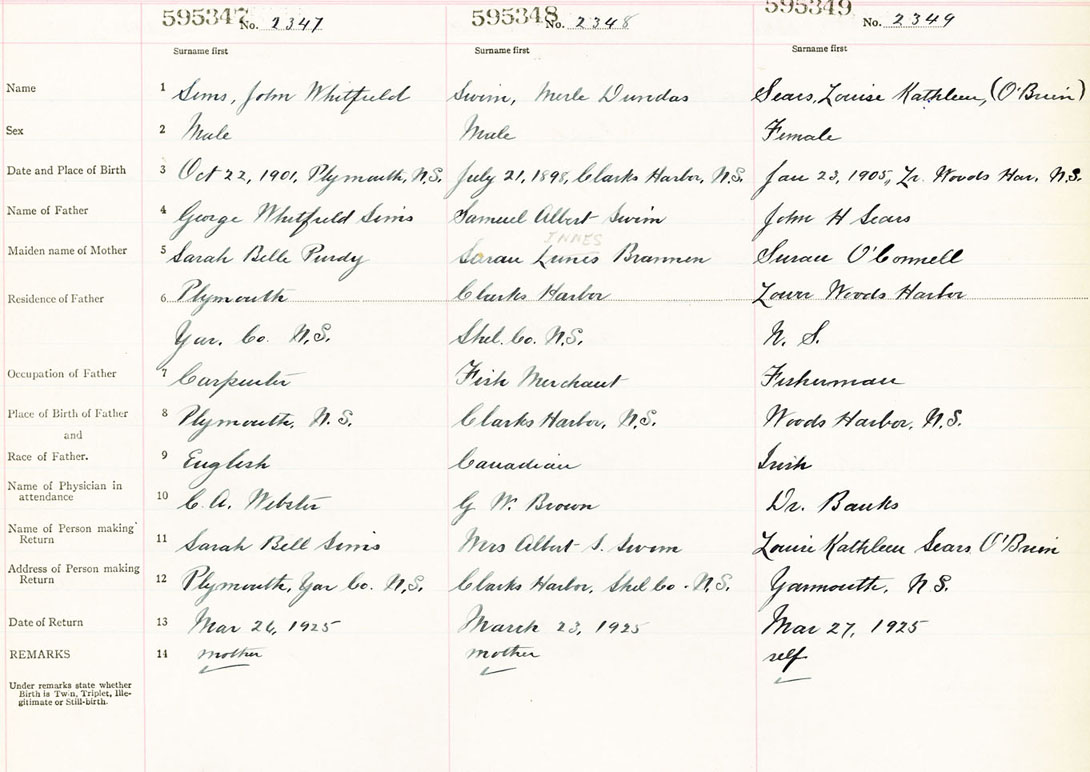 595347 No. 2347 595348 No. 2348 595349 No. 2349
Surname first Surname first Surname first
Name 1 Sims, John Whitfield Swim, Merle Dundas Sears, Louise Kathleen, (O'Brien)
Sex 2 Male Male Female
Date and Place of Birth 3 Oct 22, 1901, Plymouth, N.S. July 21, 1898, Clarks Harbor, N.S. Jan 23, 1905, Lr. Woods Har. N.S.
Name of Father 4 George Whitfield Sims Samuel Albert Swim John H Sears
INNES
Maiden name of Mother 5 Sarah Belle Purdy Sarah Brannen Susan O'Connell
Residence of Father 6 Plymouth Clarks Harbor Lower Woods Harbor
Yar. Co. N.S. Shel. Co. N.S. N. S.
Occupation of Father 7 Carpenter Fish Merchant Fisherman
Place of Birth of Father 8 Plymouth, N.S. Clarks Harbor, N.S. Woods Harbor, N.S.
and
Race of Father. 9 English Canadian Irish
Name of Physician in
attendance 10 C.A. Webster G W. Brown Dr. Banks
Name of Person making
Return 11 Sarah Bell Sims Mrs Albert S. Swim Louise Kathleen Sears O'Brien
Address of Person making
Return 12 Plymouth, Yar Co. N.S. Clarks Harbor, Shel Co. N.S. Yarmouth, N S.
Date of Return 13 Mar 26, 1925 March 23, 1925 Mar 27, 1925
REMARKS 14 mother mother self
Under remarks state whether
Birth is Twin, Triplet, Ille-
gitimate or Still-birth.